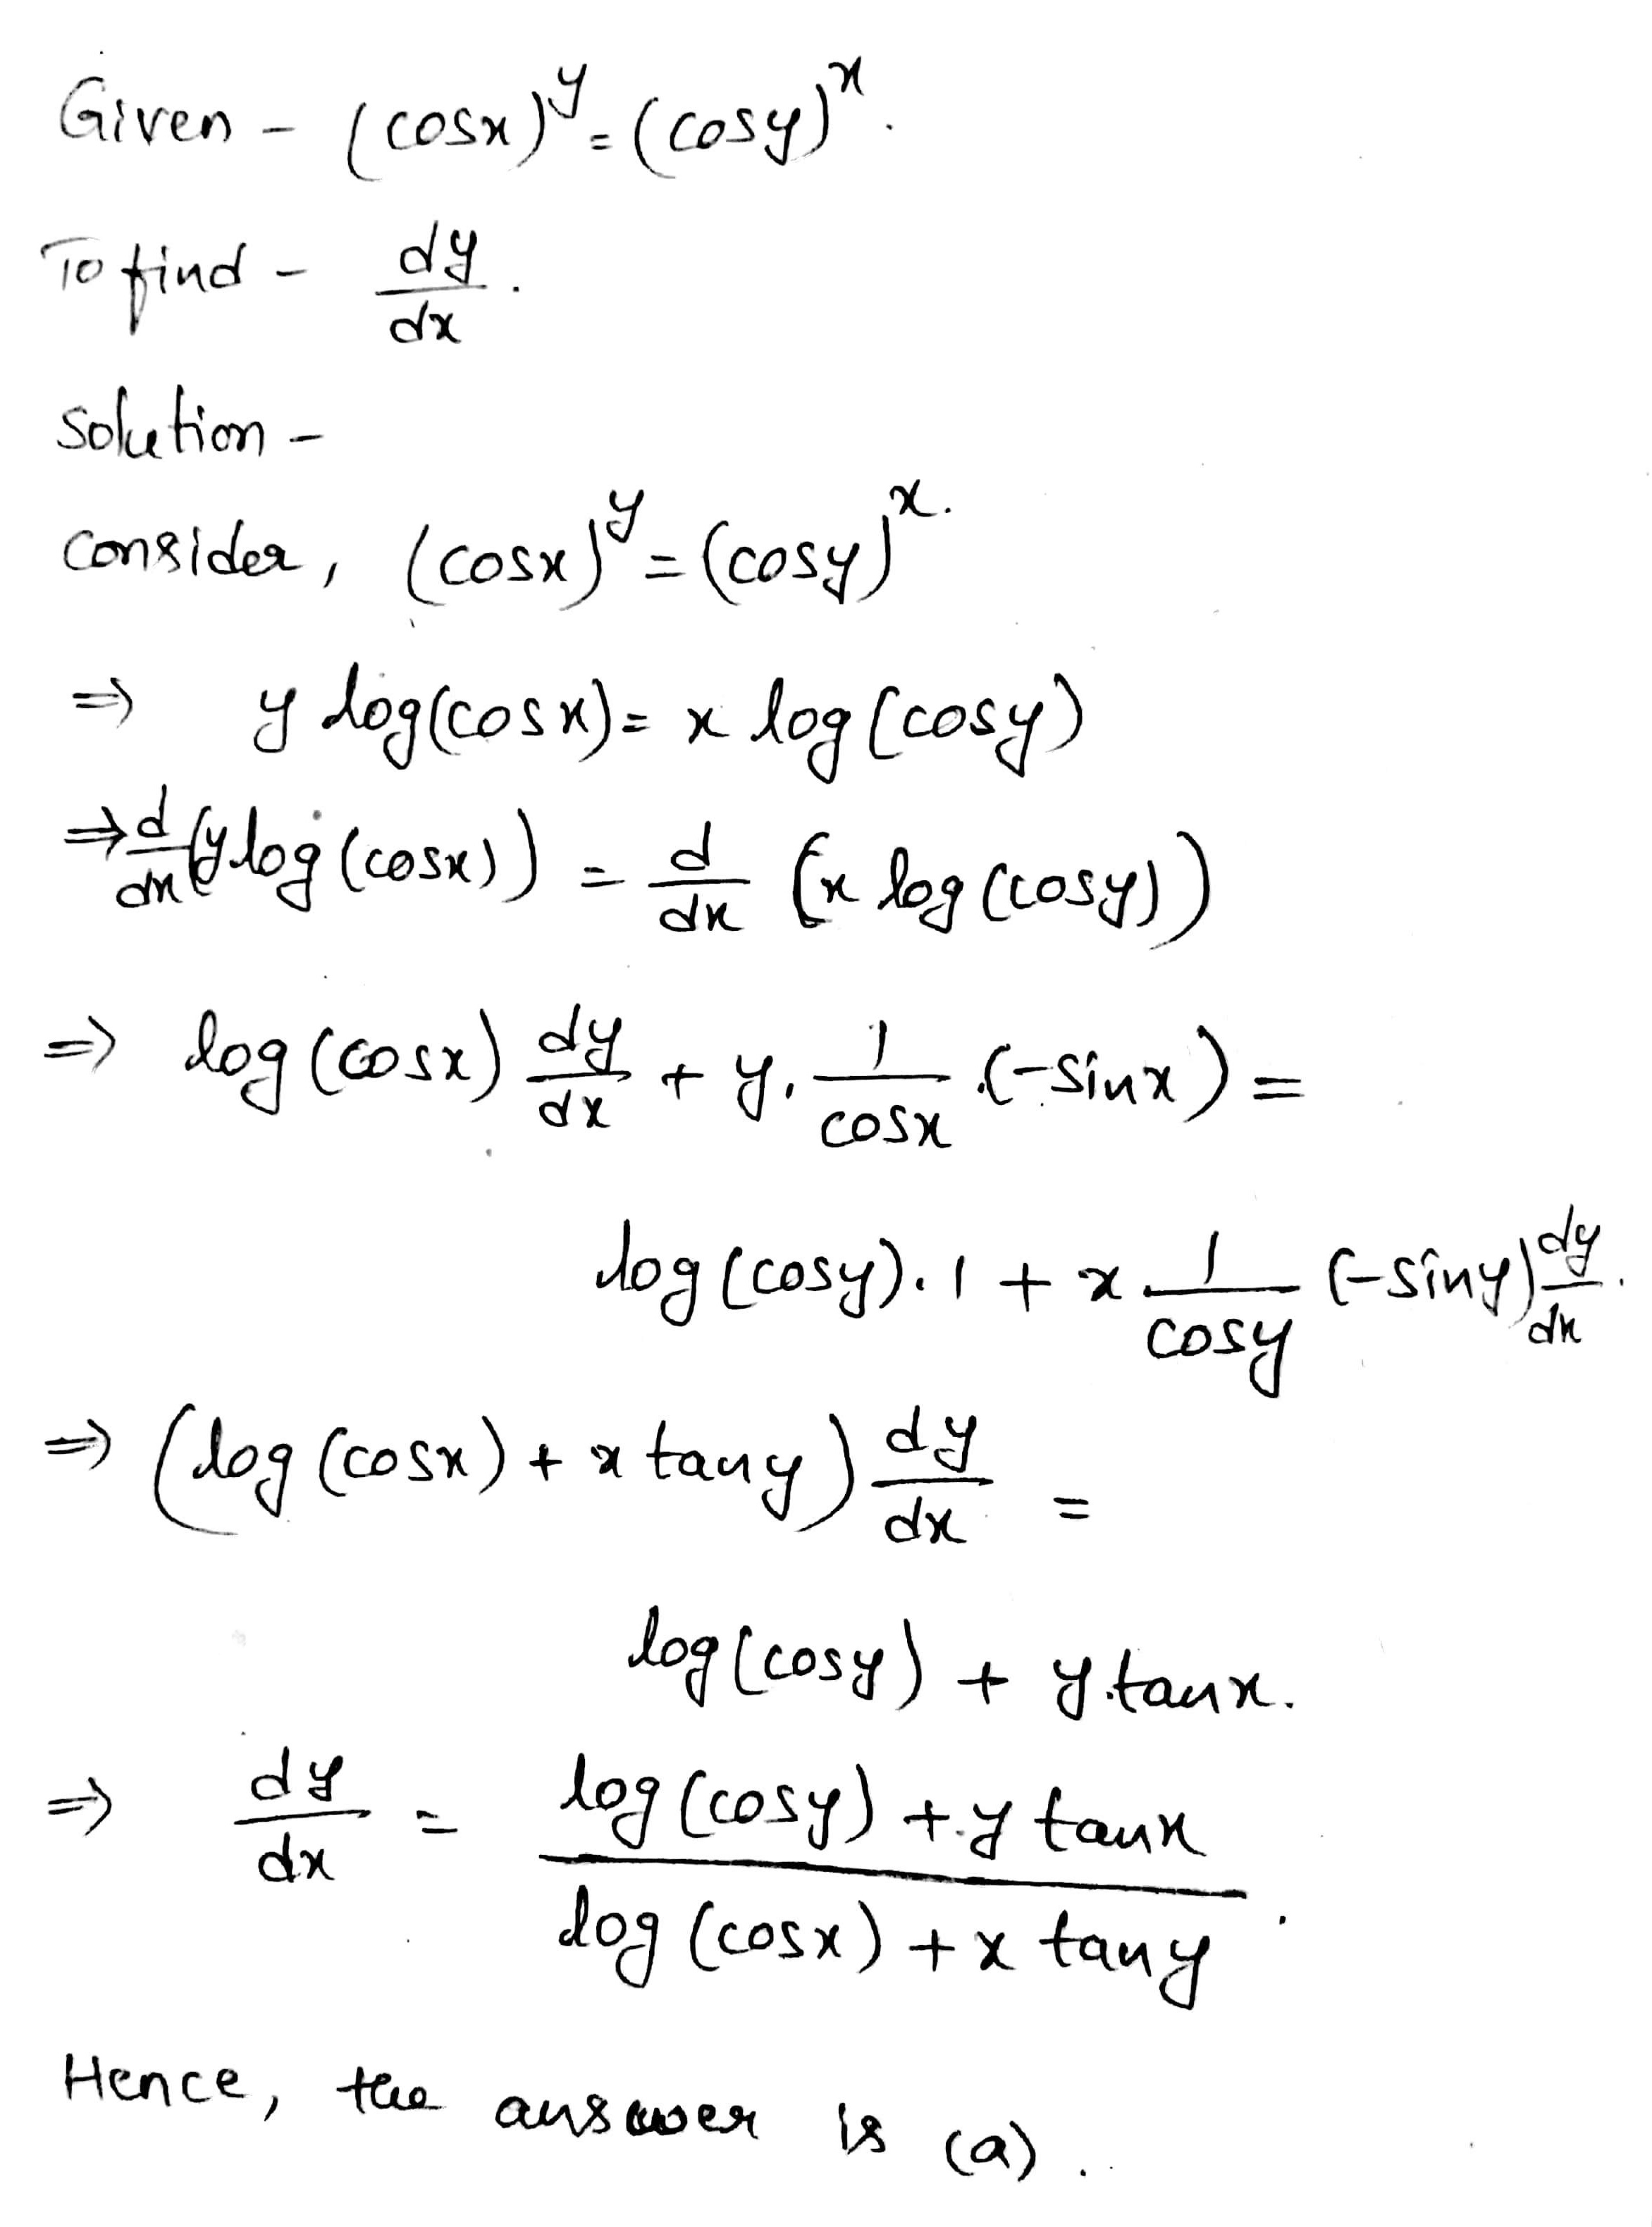 Given - (cosx)^y = (cosy)^x.
To find - dy/dx.
Solution -
Consider, (cosx)^y = (cosy)^x.
⇒ y log(cosx) = x log(cosy)
⇒ d/dx (y log(cosx)) = d/dx (x log(cosy))
⇒ log(cosx) dy/dx + y. 1/cosx .(-sinx) =
log(cosy).1 + x 1/cosy (-siny) dy/dx.
⇒ (log(cosx) + x tany) dy/dx =
log(cosy) + y.tanx.
⇒ dy/dx = (log(cosy) + y tanx)/(log(cosx) + x tany).
Hence, the answer is (a).